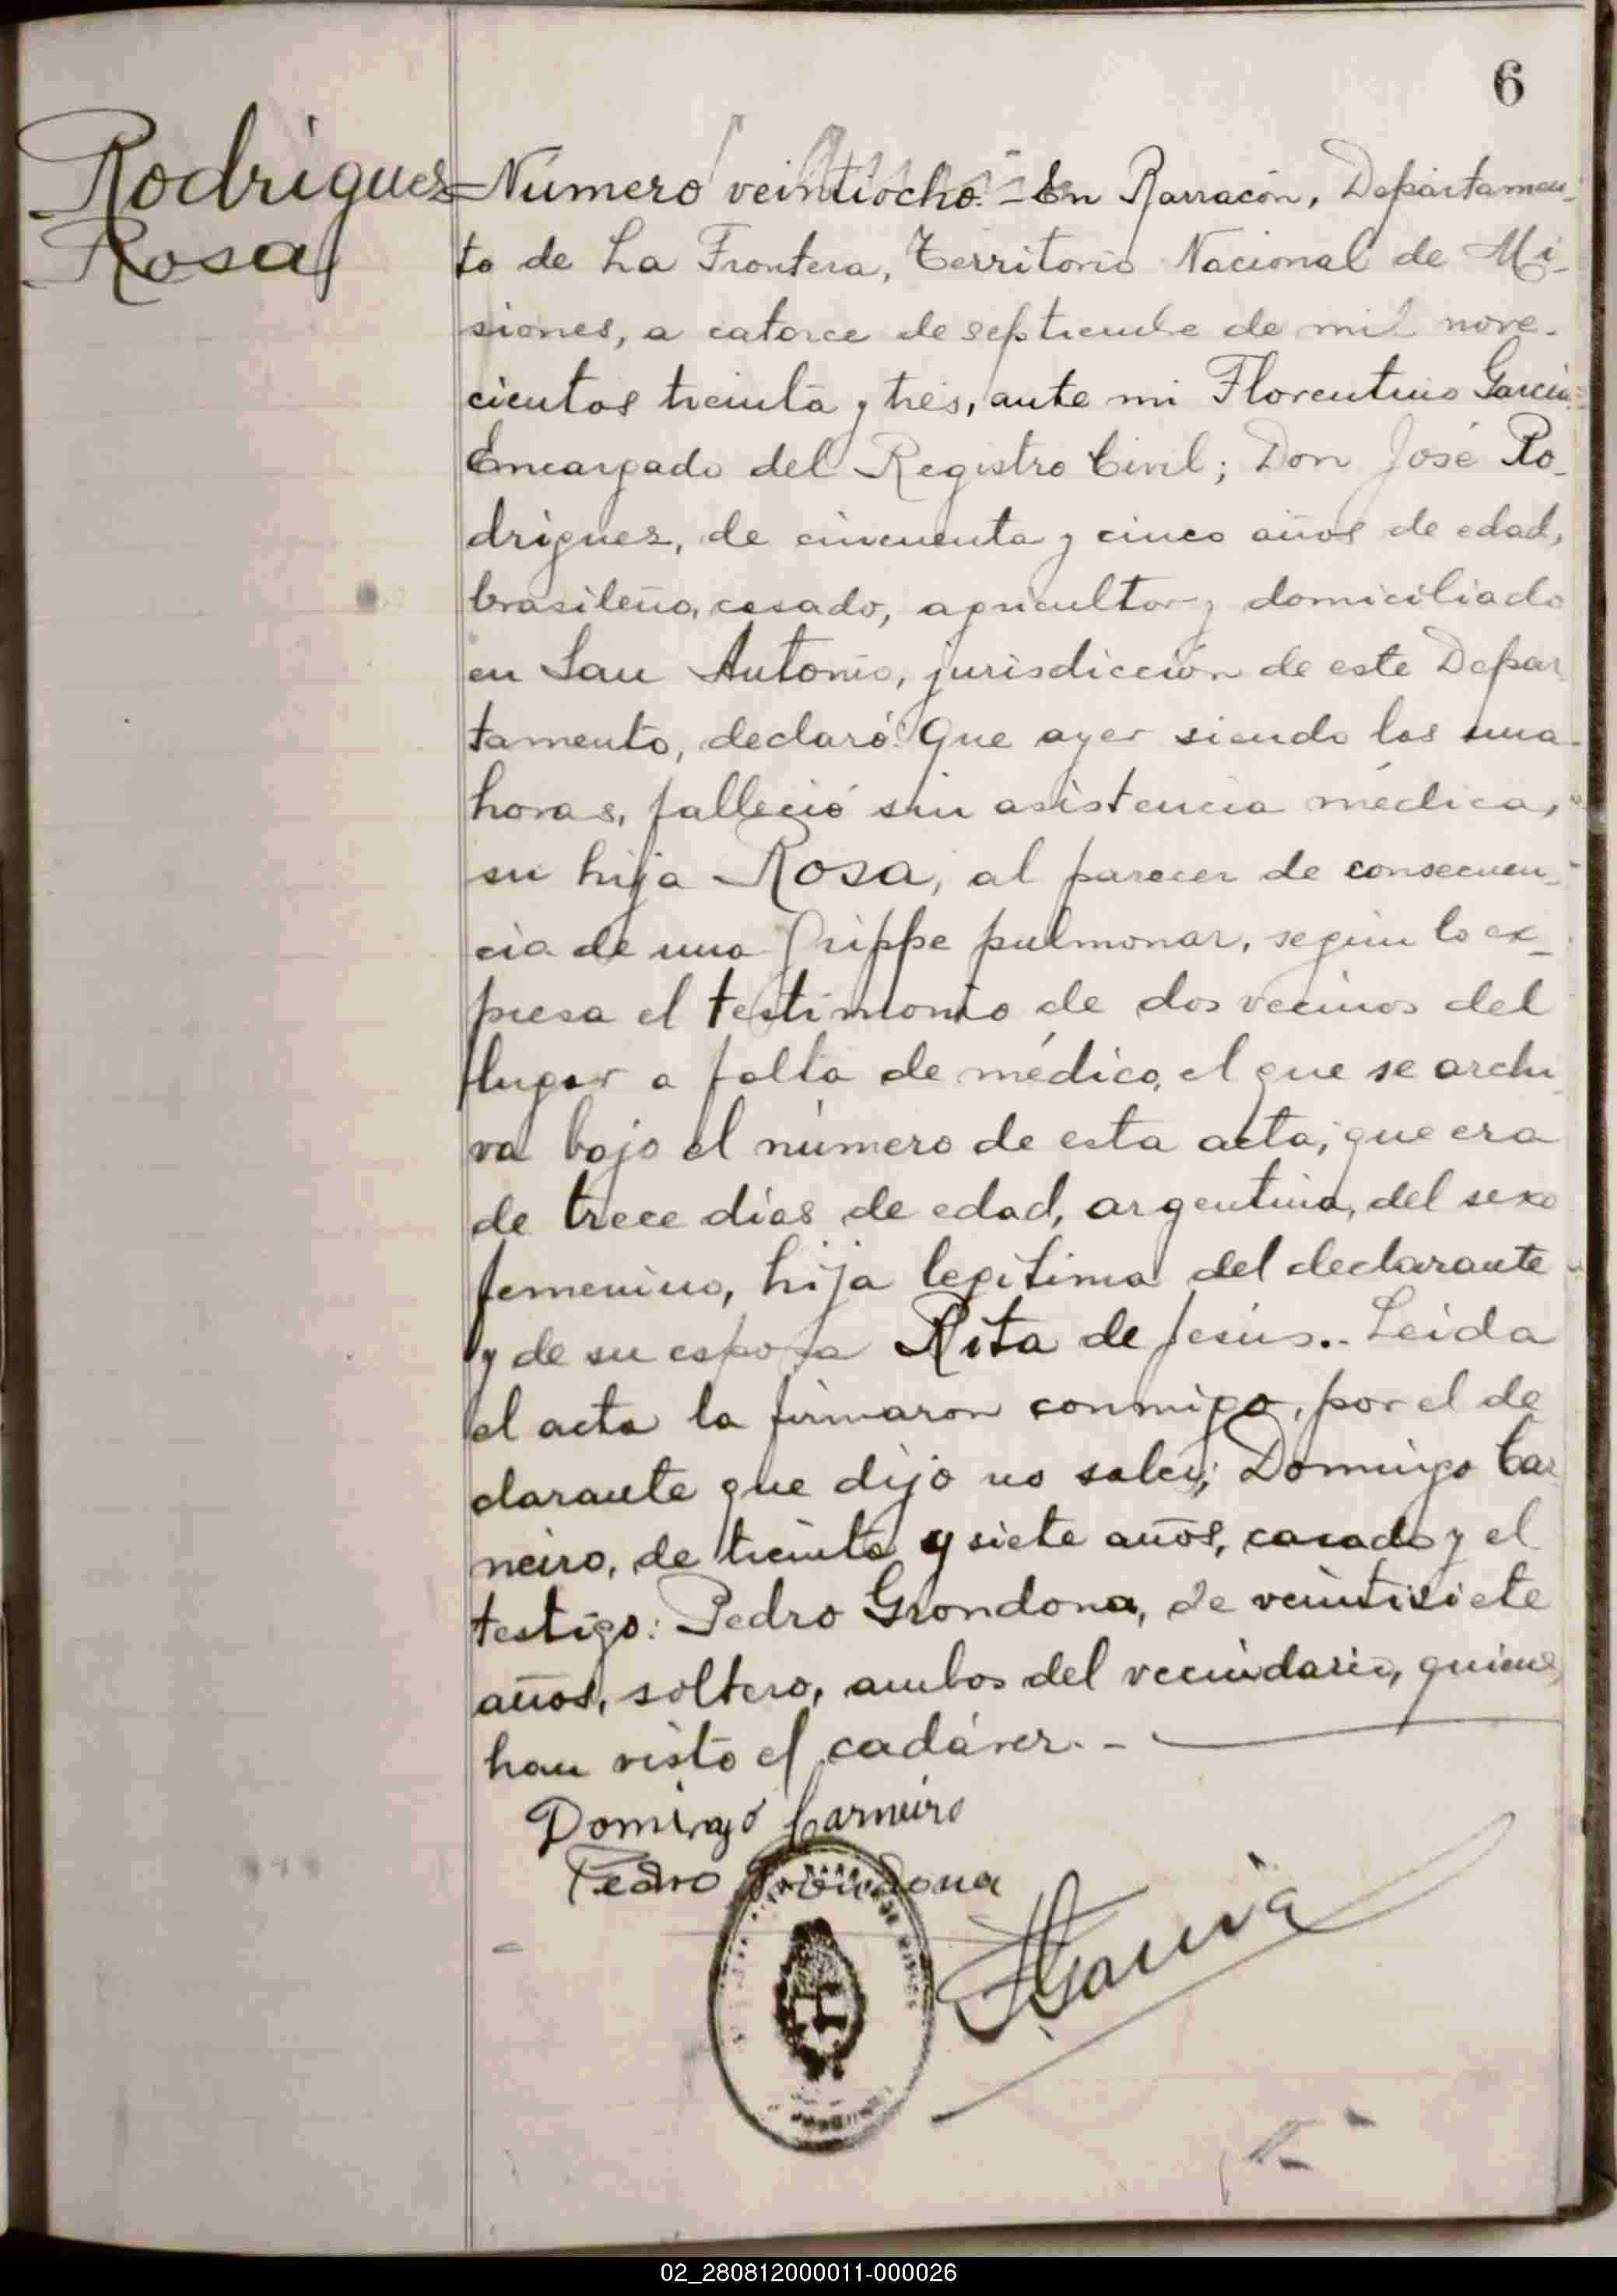 6
Rodriguez
Rosa
Número veintiocho.- En Barracón, Departamen-
to de La Frontera, Territorio Nacional de Mi-
siones, a catorce de septiembre de mil nove-
cientos treinta y tres, ante mi Florentino Garcia
Encargado del Registro Civil; Don José Ro-
driguez, de cincuenta y cinco años de edad,
brasileño, casado, agricultor y domiciliado
en San Antonio, jurisdicción de este Depar
tamento, declaró: Que ayer siendo las una
horas, falleció sin asistencia médica,
su hija Rosa, al parecer de consecuen-
cia de una Grippe pulmonar, según lo ex-
presa el testimonio de dos vecinos del
lugar a falta de médico, el que se archi
va bajo el número de esta acta; que era
de trece días de edad, argentina, del sexo
femenino, hija legítima del declarante
y de su esposa Rita de Jesús.- Leida
el acta la firmaron conmigo, por el de
clarante que dijo no saber; Domingo Car
neiro, de treinta y siete años, casado y el
testigo: Pedro Grondona, de veintisiete
años, soltero, ambos del vecindario, quienes
han visto el cadáver.-
Domingo Carneiro
Pedro Grondona
FGarcia
02_280812000011-000026